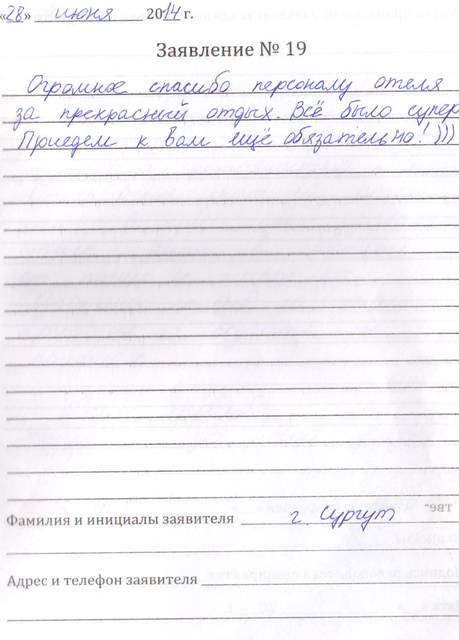 «28» июня 2014 г.
Заявление № 19
Огромное спасибо персоналу отеля
за прекрасный отдых. Всё было супер
Приедем к Вам ещё обязательно! )))
Фамилия и инициалы заявителя г. Сургут
Адрес и телефон заявителя